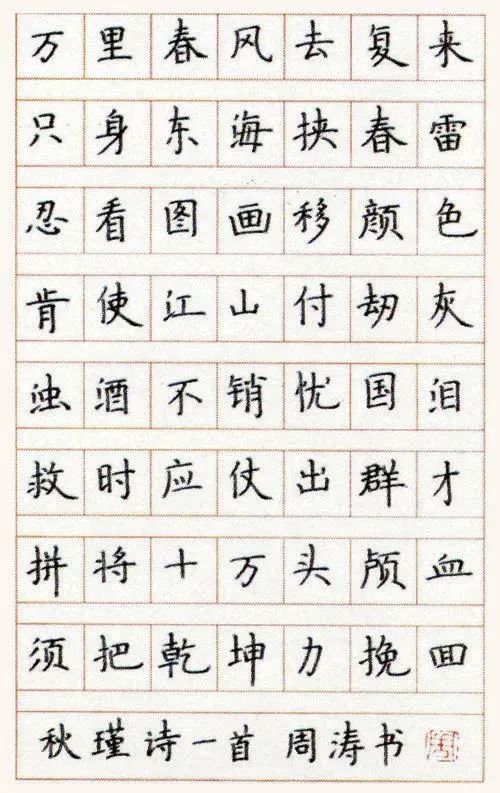 万里春风去复来
只身东海挟春雷
忍看图画移颜色
肯使江山付劫灰
浊酒不销忧国泪
救时应仗出群才
拼将十万头颅血
须把乾坤力挽回
秋瑾诗一首 周涛书